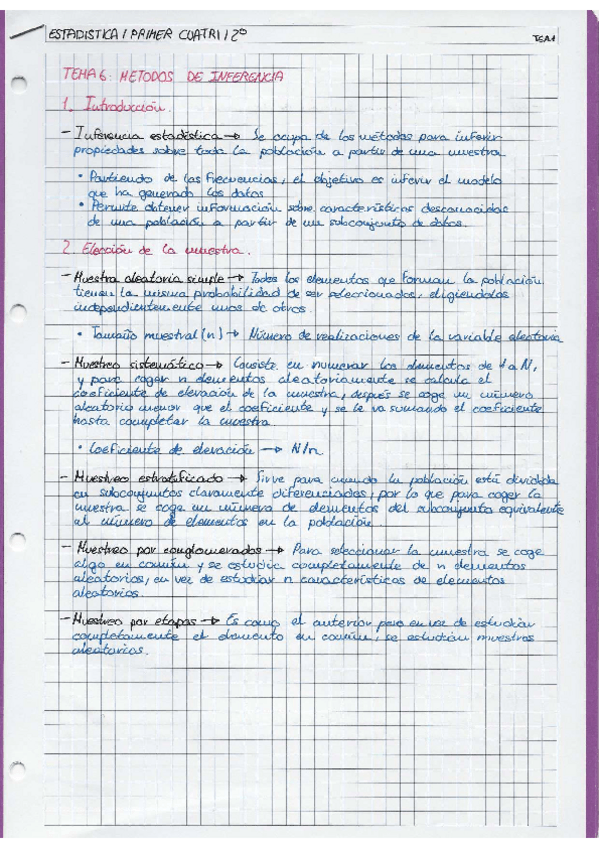 ESTADISTICA / PRIMER CUATRI / 2º
TEMA 6: METODOS DE INFERENCIA
1. Introducción.
- Inferencia estadística → Se ocupa de los métodos para inferir
propiedades sobre toda la población a partir de una muestra
• Partiendo de las frecuencias, el objetivo es inferir el modelo
que ha generado los datos
• Permite obtener información sobre características desconocidas
de una población a partir de un subconjunto de datos.
2. Elección de la muestra.
- Muestra aleatoria simple → Todos los elementos que forman la población
tienen la misma probabilidad de ser seleccionados, eligiendolos
independientemente unos de otros.
• Tamaño muestral (n) → Número de realizaciones de la variable aleatoria
- Muestreo sistemático → Consiste en numerar los elementos de 1 a N,
y para coger n elementos aleatoriamente se calcula el
coeficiente de elevación de la muestra, después se coge un número
aleatorio menor que el coeficiente y se le va sumando el coeficiente
hasta completar la muestra
• Coeficiente de elevación → N/n
- Muestreo estratificado → Sirve para cuando la población está dividida
en subconjuntos claramente diferenciados, por lo que para coger la
muestra se coge un número de elementos del subconjunto equivalente
al número de elementos en la población
- Muestreo por conglomerados → Para seleccionar la muestra se coge
algo en común y se estudia completamente de n elementos
aleatorios, en vez de estudiar n características de elementos
aleatorios.
- Muestreo por etapas → Es como el anterior pero en vez de estudiar
completamente el elemento en común, se estudian muestras
aleatorias.